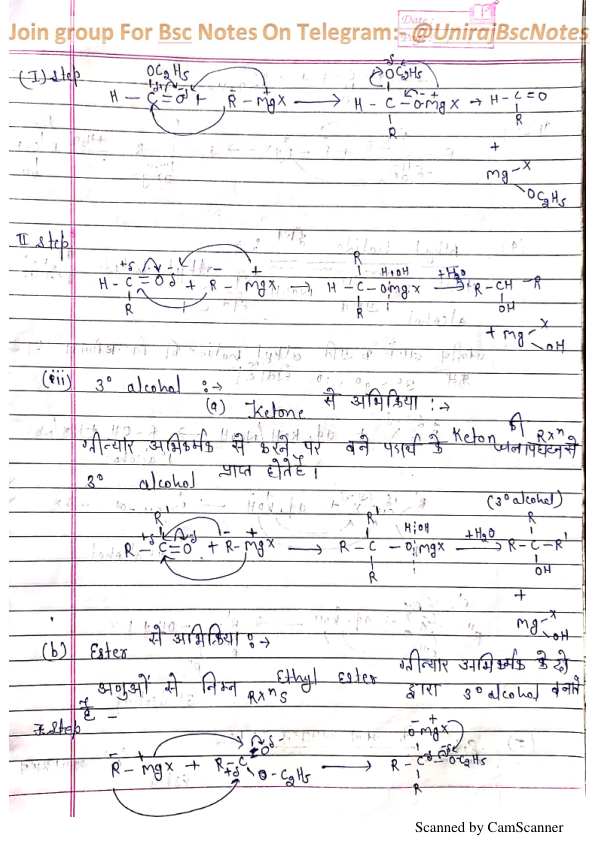 Join group For Bsc Notes On Telegram:- @UnirajBscNotes
(I) step
OC₂H₅ OC₂H₅
H – C = O + R – MgX → H – C – OMgX → H – C = O
R R
+
Mg – X
OC₂H₅
II step
R
H – C = O + R – MgX → H – C – OMgX +H₂O → R – CH – R
R R OH
+ Mg – X
OH
(iii) 3° alcohol :→
(a) Ketone से अभिक्रिया :→
Keton की Rxⁿ
ग्रीन्यार अभिकर्मक से करने पर बने पदार्थ के जलअपघटन से
3° alcohol प्राप्त होते हैं।
(3° alcohol)
R' R' H|OH R
R – C = O + R – MgX → R – C – OMgX +H₂O → R – C – R'
R OH
+
Mg – X
OH
(b) Ester से अभिक्रिया :→
ग्रीन्यार अभिकर्मक के दो
अणुओं से निम्न Rxⁿs Ethyl Ester द्वारा 3° alcohol बनाते
है –
I step
OMgX
R – MgX + R – C O – C₂H₅ → R – C – OC₂H₅
R
Scanned by CamScanner